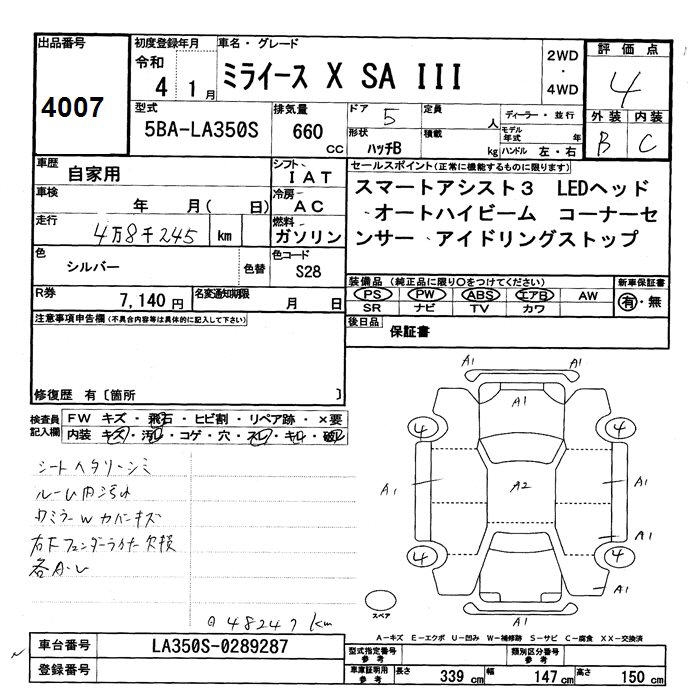 出品番号 初度登録年月 車名・グレード 評価点
4007 令和 4年 1月 ミライース X SA III 2WD・4WD 4
型式 5BA-LA350S 排気量 660 CC ドア 5 定員 人 ディーラー・並行 外装 内装
形状 ハッチB 積載 kg モデル年式 年 ハンドル 左・右 B C
車歴 自家用 シフト IAT セールスポイント(正常に機能するものに限ります)
車検 年 月( 日) 冷房 AC スマートアシスト3 LEDヘッド
走行 4万8千245 km 燃料 ガソリン 、オートハイビーム コーナーセ
ンサー、アイドリングストップ
色 シルバー 色替 色コード S28
R券 7,140円 名変通知期限 月 日 装備品(純正品に限り○をつけてください) 新車保証書
PS PW ABS エアB AW 有・無
SR ナビ TV カワ
注意事項申告欄(不具合内容等は具体的に記入して下さい) 後日品 保証書
修復歴 有〔箇所 〕
検査員記入欄 FW キズ・飛石・ヒビ割・リペア跡・×要
内装 キズ・汚れ・コゲ・穴・スレ・キレ・破れ
シートヘタリーシミ
ルーム内汚れ
カバーキズ
欠損
48247 km
A1 A1
A1
4 4
A1 A2 A1
4 4
A1
A1
スペア
A-キズ E-エクボ U-凹み W-補修跡 S-サビ C-腐食 XX-交換済
車台番号 LA350S-0289287 型式指定番号 参考 類別区分番号 参考
登録番号 車庫証明用 参考 長さ 339 cm 幅 147 cm 高さ 150 cm